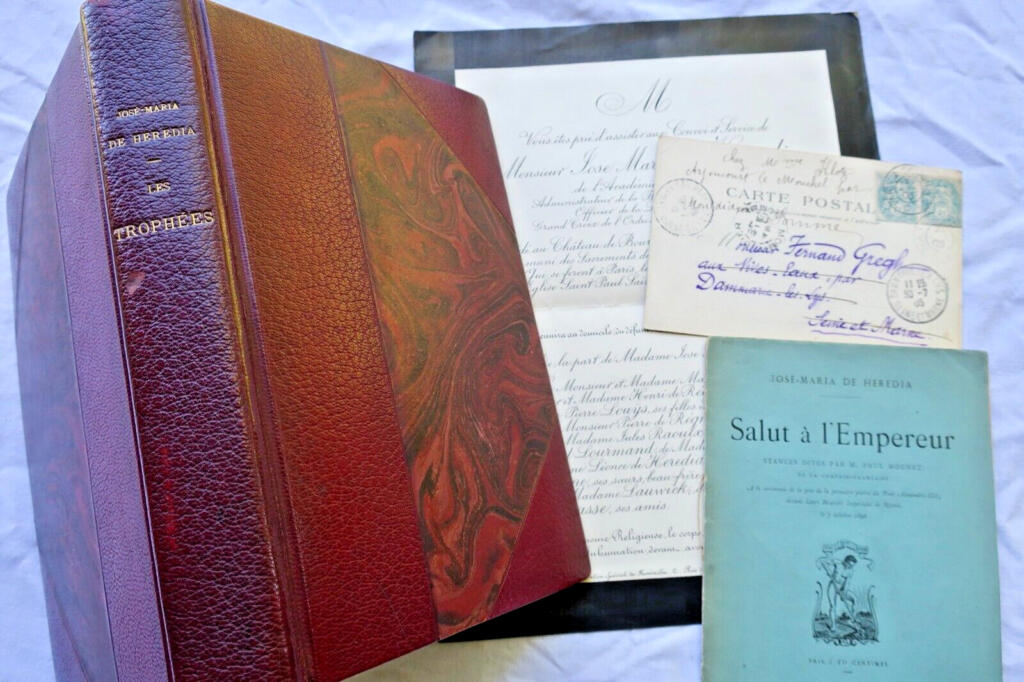 JOSÉ-MARIA
DE HEREDIA
LES
TROPHÉES
M
Vous êtes prié d'assister aux Convoi et Service de
Monsieur José Mar
de l'Académ
Administrateur de la B
Officier de la
Grand Croix de l'Ordr
dé au Château de Bou
muni des Sacrements de
Qui se feront à Paris, le
glise Saint Paul Sai
unira au domicile du défun
e la part de Madame José
Monsieur et Madame Ma
et Madame Henri de Ré
Pierre Louÿs, ses filles
Monsieur Pierre de Régn
Madame Jules Raoulx
Lourmand, de Mada
me Léonce de Heredia
ne, ses sœurs, beau-frère
Madame Lauwick, M
asse, ses amis.
onie Religieuse, le corps
inhumation devant avo
CARTE POSTAL
Monsieur Fernand Gregh
aux Vives-Eaux, par
Dammarie-les-Lys
Seine et Marne
Chez
Ayencourt le Monchel par
Montdidier
Somme
JOSÉ-MARIA DE HEREDIA
Salut à l'Empereur
STANCES DITES PAR M. PAUL MOUNET
DE LA COMÉDIE-FRANÇAISE
A la cérémonie de la pose de la première pierre du Pont Alexandre III,
devant Leurs Majestés Impériales de Russie,
le 7 octobre 1896